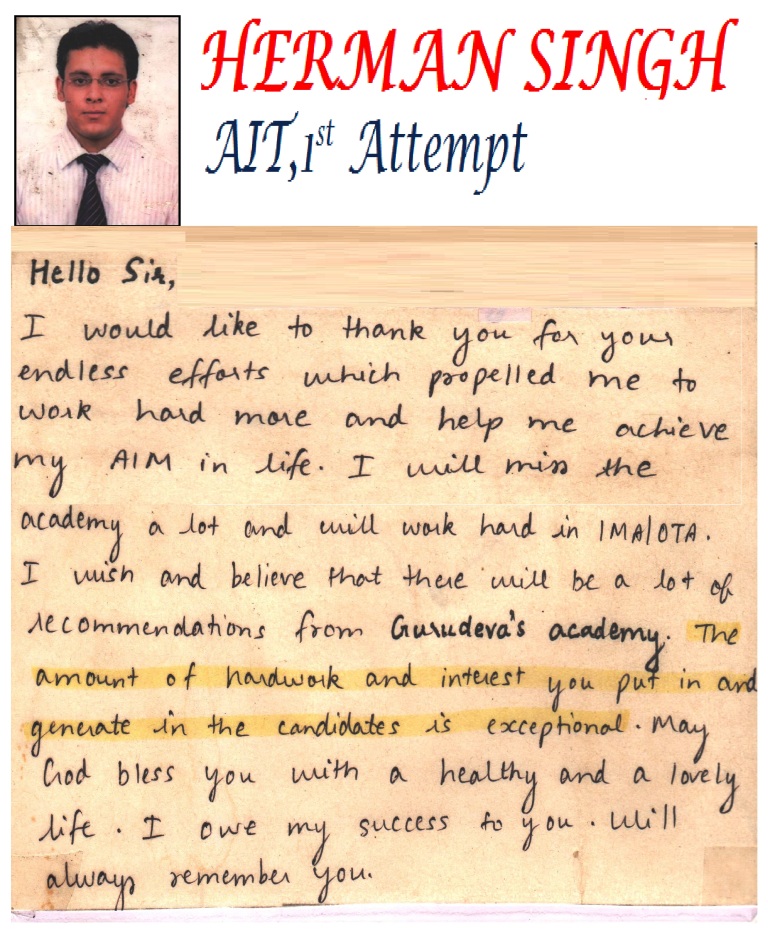 HERMAN SINGH
AIT,1st Attempt
Hello Sir,
I would like to thank you for your
endless efforts which propelled me to
work hard more and help me achieve
my AIM in life. I will miss the
academy a lot and will work hard in IMA/OTA.
I wish and believe that there will be a lot of
recommendations from Gurudeva's academy. The
amount of hardwork and interest you put in and
generate in the candidates is exceptional. May
God bless you with a healthy and a lovely
life. I owe my success to you. Will
always remember you.